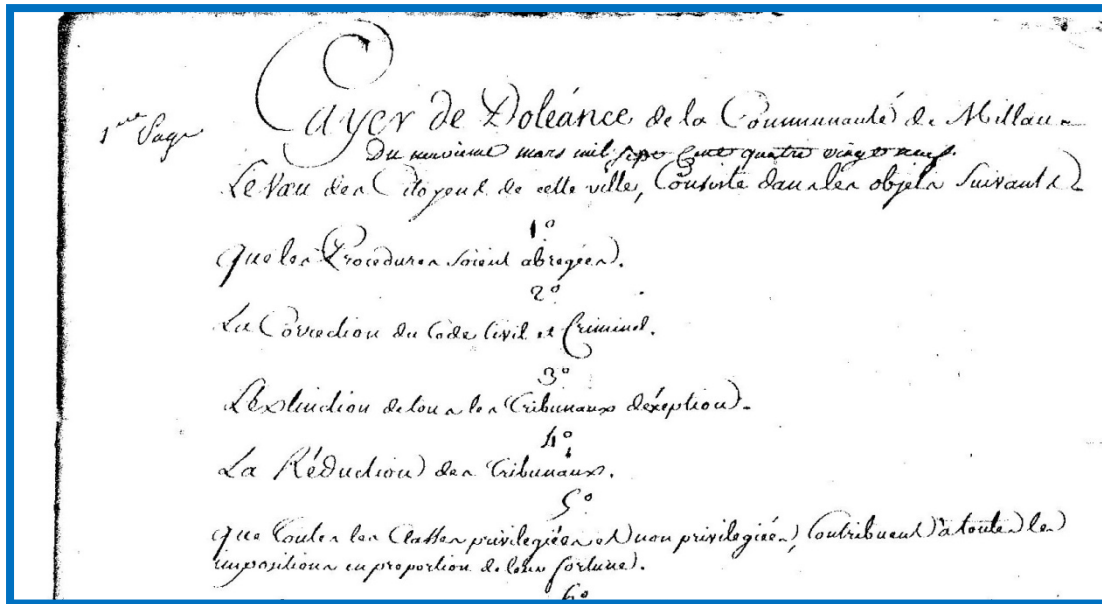 1ere Page
Cayer de Doléance de la Communauté de Millau
Du neuvieme mars mil sept cent quatre vingt neuf.
Le Vœu des Citoyens de cette ville, Consiste dans les objets suivants
1°
Que les Procedures soient abregées.
2°
La Correction du Code Civil et Criminel.
3°
L'extinction de tous les Tribunaux d'éxeption.
4°
La Réduction des Tribunaux.
5°
Que toutes les Classes privilegiées et non privilegiées, Contribuent à toutes les
impositions en proportion de leur fortune.
6°